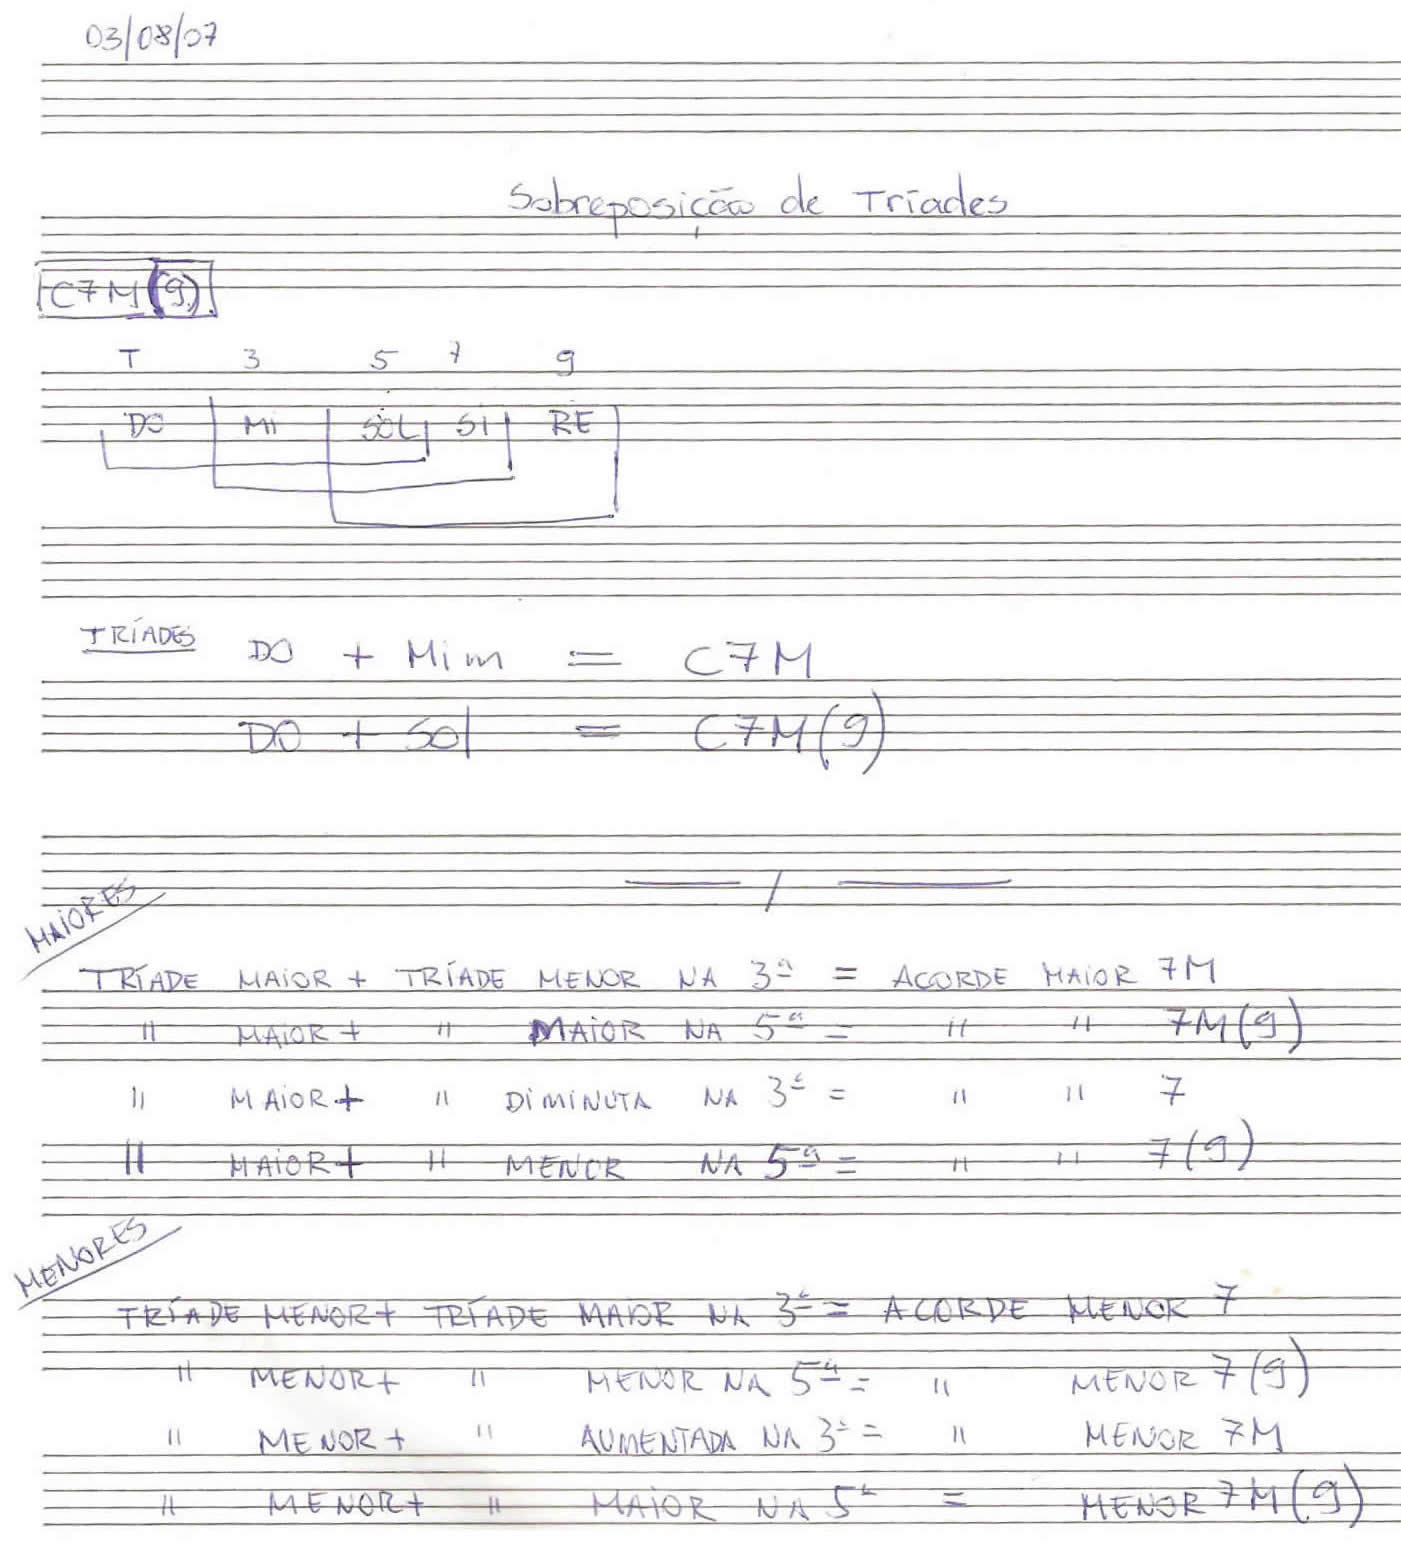 03/08/07
Sobreposição de Tríades
C7M(9)
T 3 5 7 9
DO Mi SOL Si RE
TRÍADES DO + Mim = C7M
DO + Sol = C7M(9)
/
MAiORES
TRÍADE MAiOR + TRÍADE MENOR NA 3ª = ACORDE MAiOR 7M
" MAiOR + " MAiOR NA 5ª = " " 7M(9)
" MAiOR + " DiMiNUTA NA 3ª = " " 7
" MAiOR + " MENOR NA 5ª = " " 7(9)
MENORES
TRÍADE MENOR + TRÍADE MAIOR NA 3ª = ACORDE MENOR 7
" MENOR + " MENOR NA 5ª = " MENOR 7(9)
" MENOR + " AUMENTADA NA 3ª = " MENOR 7M
" MENOR + " MAiOR NA 5ª = MENOR 7M(9)